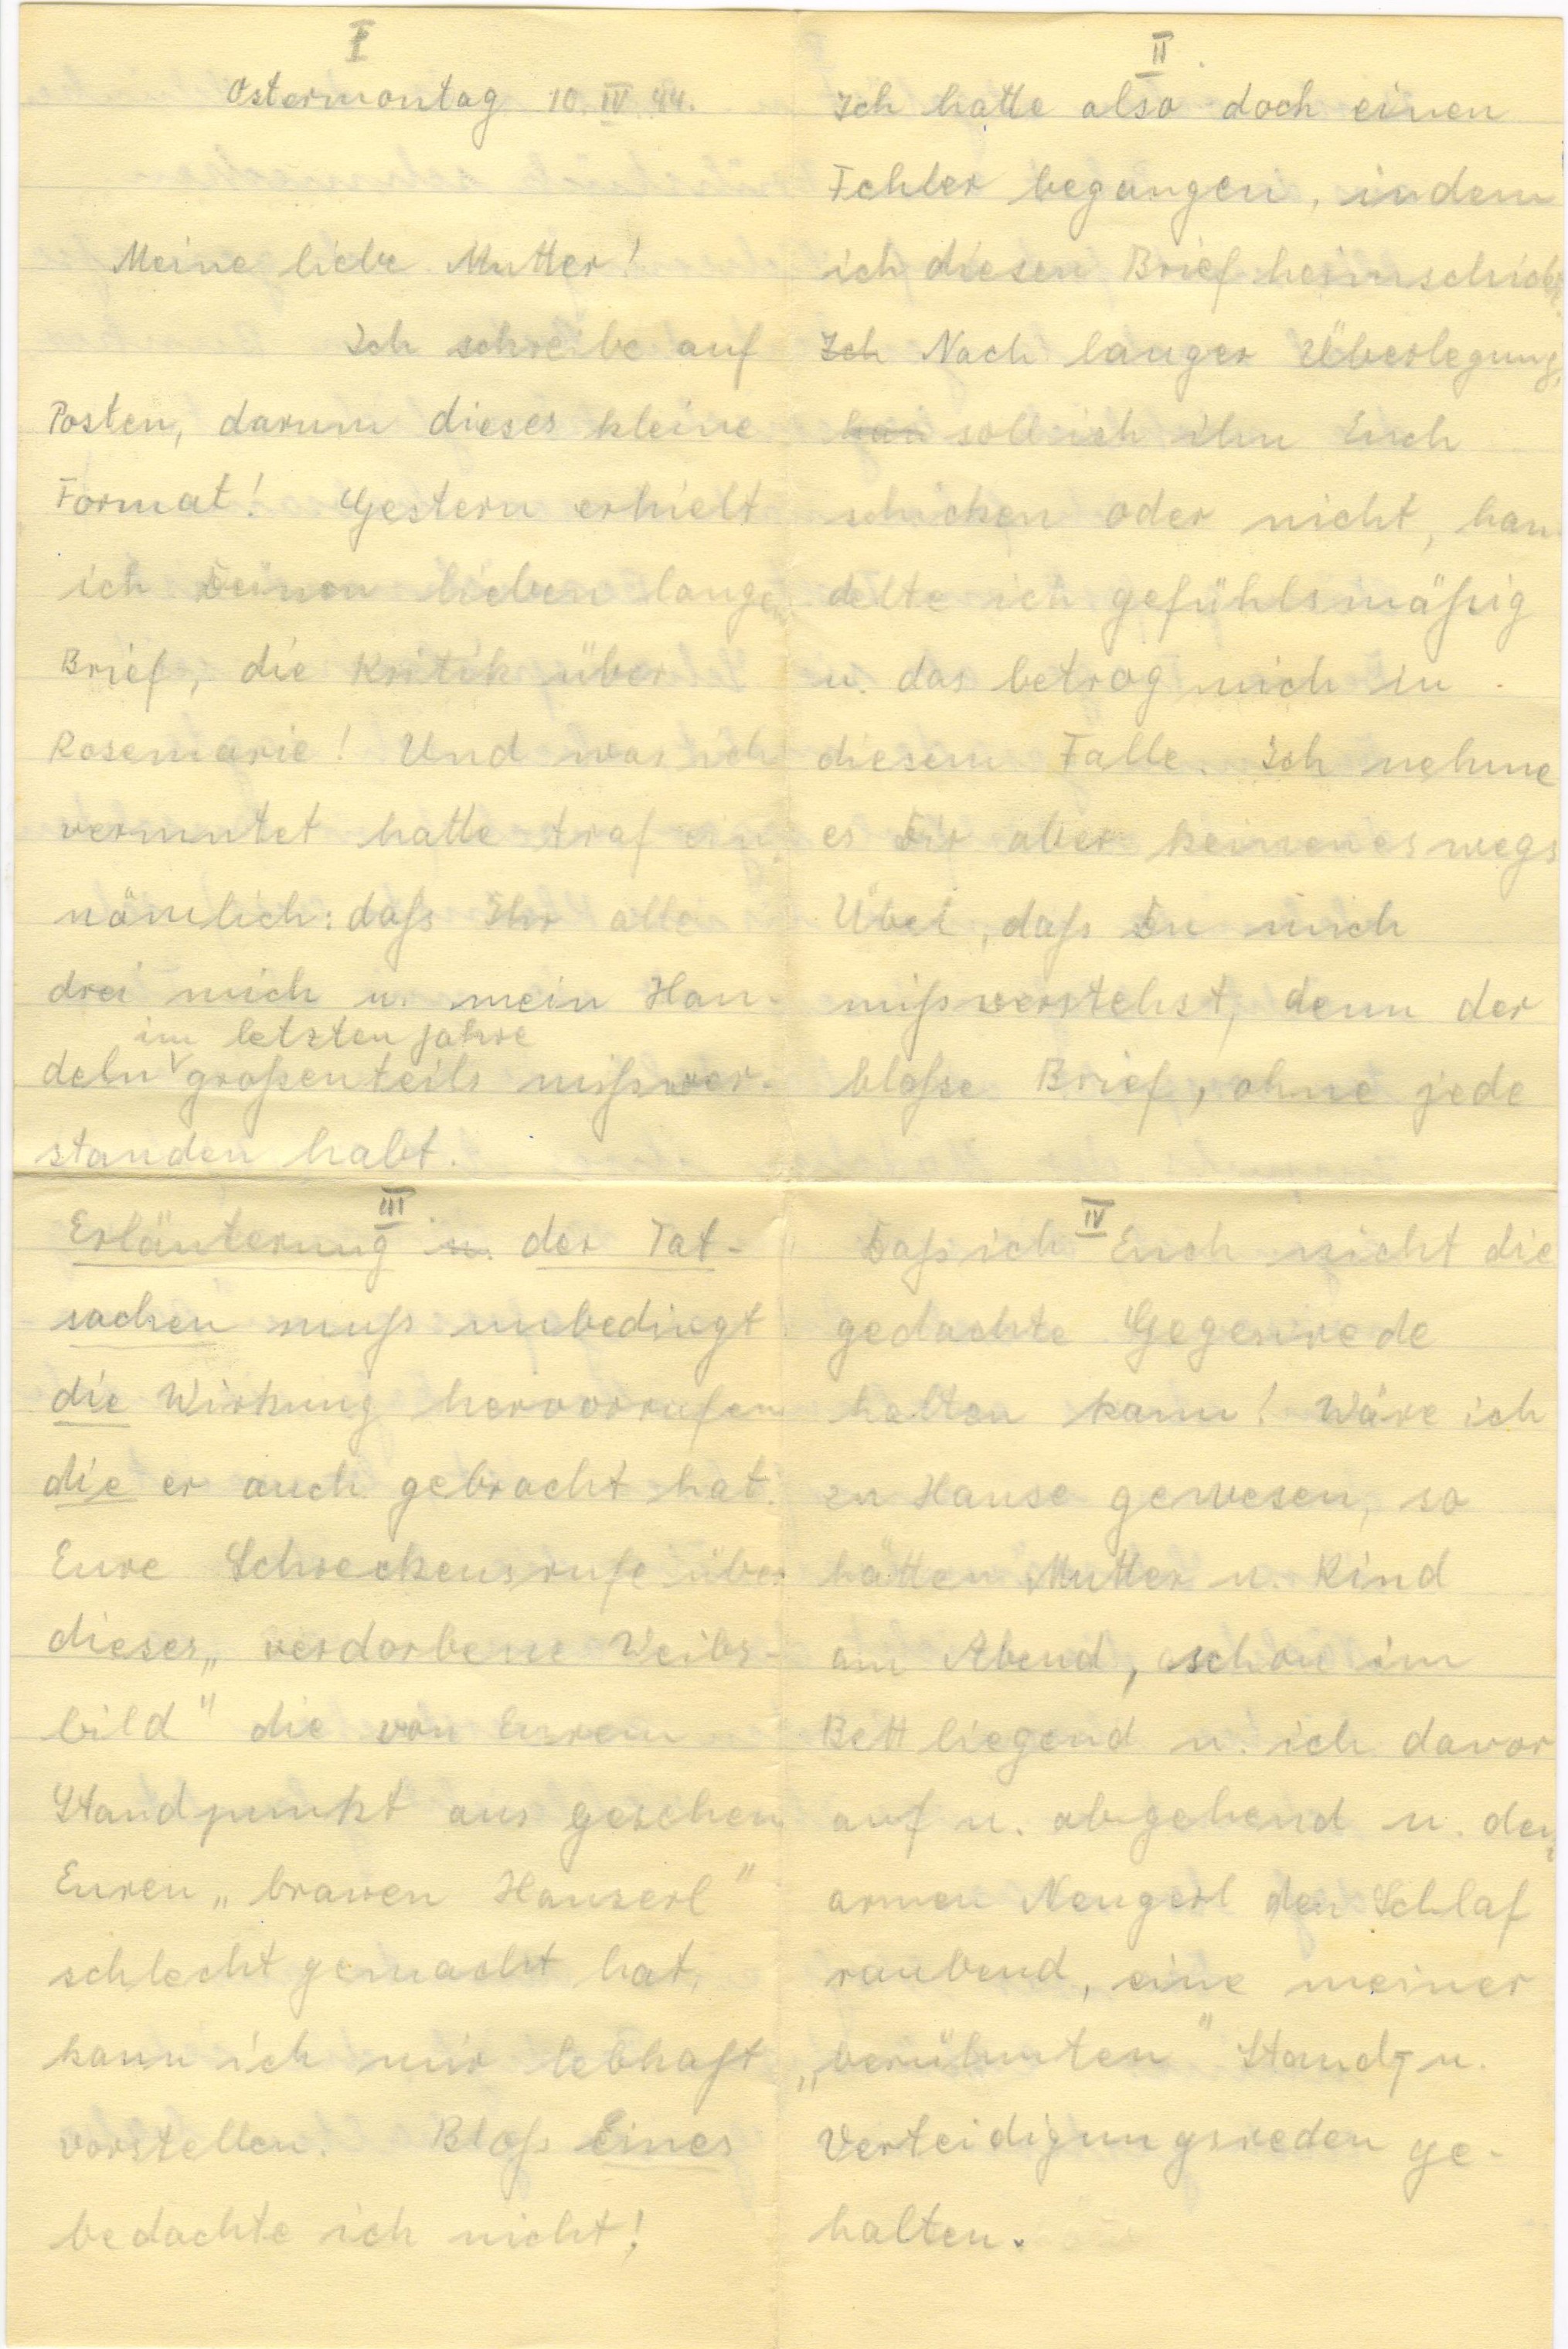 I
Ostermontag 10. IV. 44.
Meine liebe Mutter!
Ich schreibe auf
Posten, darum dieses kleine
Format! Gestern erhielt
ich Deinen lieben langen
Brief, die Kritik über
Rosemarie! Und was ich
vermutet hatte traf ein,
nämlich: daß Ihr alle
drei mich u. mein Han-
im letzten Jahre
deln großenteils mißver-
standen habt.
II
Ich hatte also doch einen
Fehler begangen, indem
ich diesen Brief heimschickte.
Ich Nach langer Überlegung,
han soll ich ihn Euch
schicken oder nicht, han-
delte ich gefühlsmäßig
u. das betrog mich in
diesem Falle. Ich nehme
es Dir aber keineneswegs
Übel, daß Du mich
mißverstehst, denn der
bloße Brief, ohne jede
III
Erläuterung u. der Tat-
sachen muß unbedingt
die Wirkung hervorrufen
die er auch gebracht hat.
Eure Schreckensrufe über
dieses „verdorbene Weibs-
bild" die von Eurem
Standpunkt aus gesehen
Euren „braven Hanserl"
schlecht gemacht hat,
kann ich mir lebhaft
vorstellen. Bloß Eines
bedachte ich nicht!
IV
Daß ich Euch nicht die
gedachte Gegenrede
halten kann! Wäre ich
zu Hause gewesen, so
hätten Mutter u. Kind
am Abend, schon im
Bett liegend u. ich davor
auf u. abgehend u. den
armen Neugerl den Schlaf
raubend, eine meiner
„berühmten" Stand- u.
Verteidigungsreden ge-
halten.